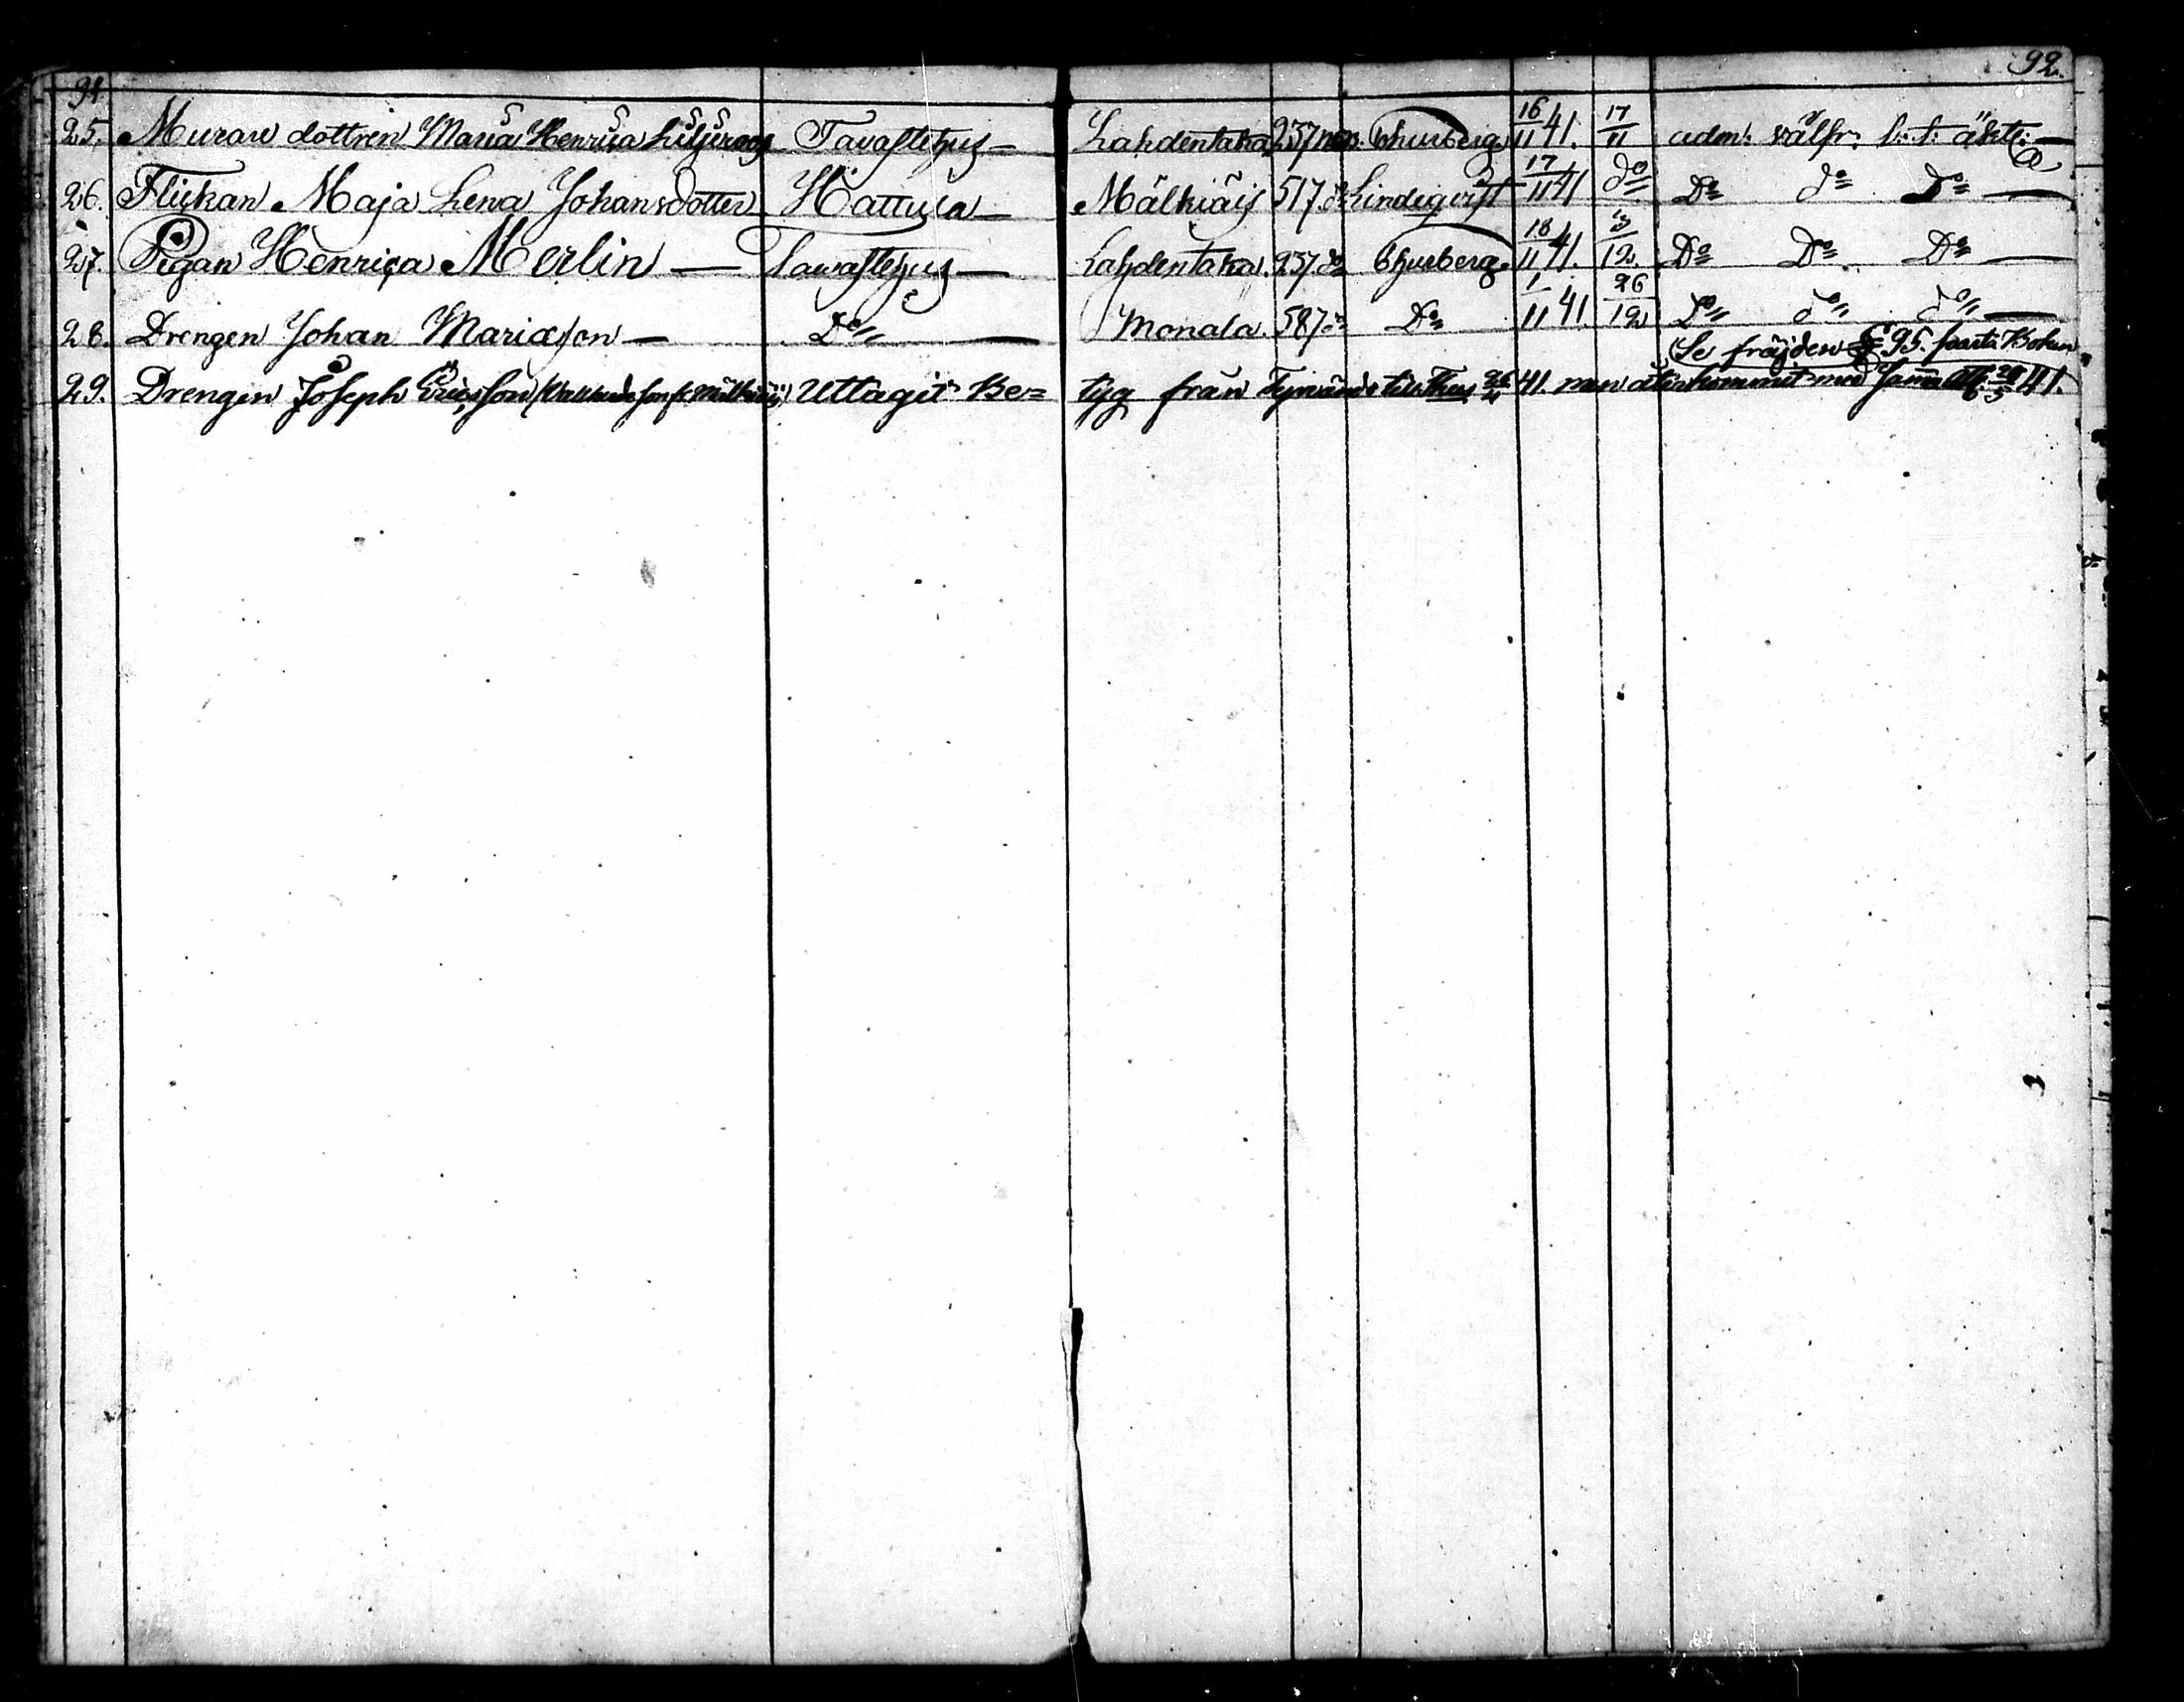 91. 92.
25. Murare dottren Maria Henrica Liljeroos Tavastehus — Lahdentaka 257 nop. Thurberg. 16/11 41. 17/11 adm: välfr: l: l: äkt: —
26. Flickan Maja Lena Johansdotter Hattula — Mälkiäis 517. do Lindeqvist 17/11 41 do Do do Do —
27. Pigan Henrica Merlin — Tavastehus — Lahdentaka. 257 do Thurberg. 18/11 41. 3/12. Do Do Do
28. Drengen Johan Mariæson — Do — Monala. 587 do Do 1/11 41. 26/12 Do do do —
(Se fräjden 95. Kokun
29. Drengen Joseph Ericsson Mälkiäis) Uttagit Be= tyg från Tyrvändö till Thus 26/4 41. men återkommit med samma Att. 29/5 41.